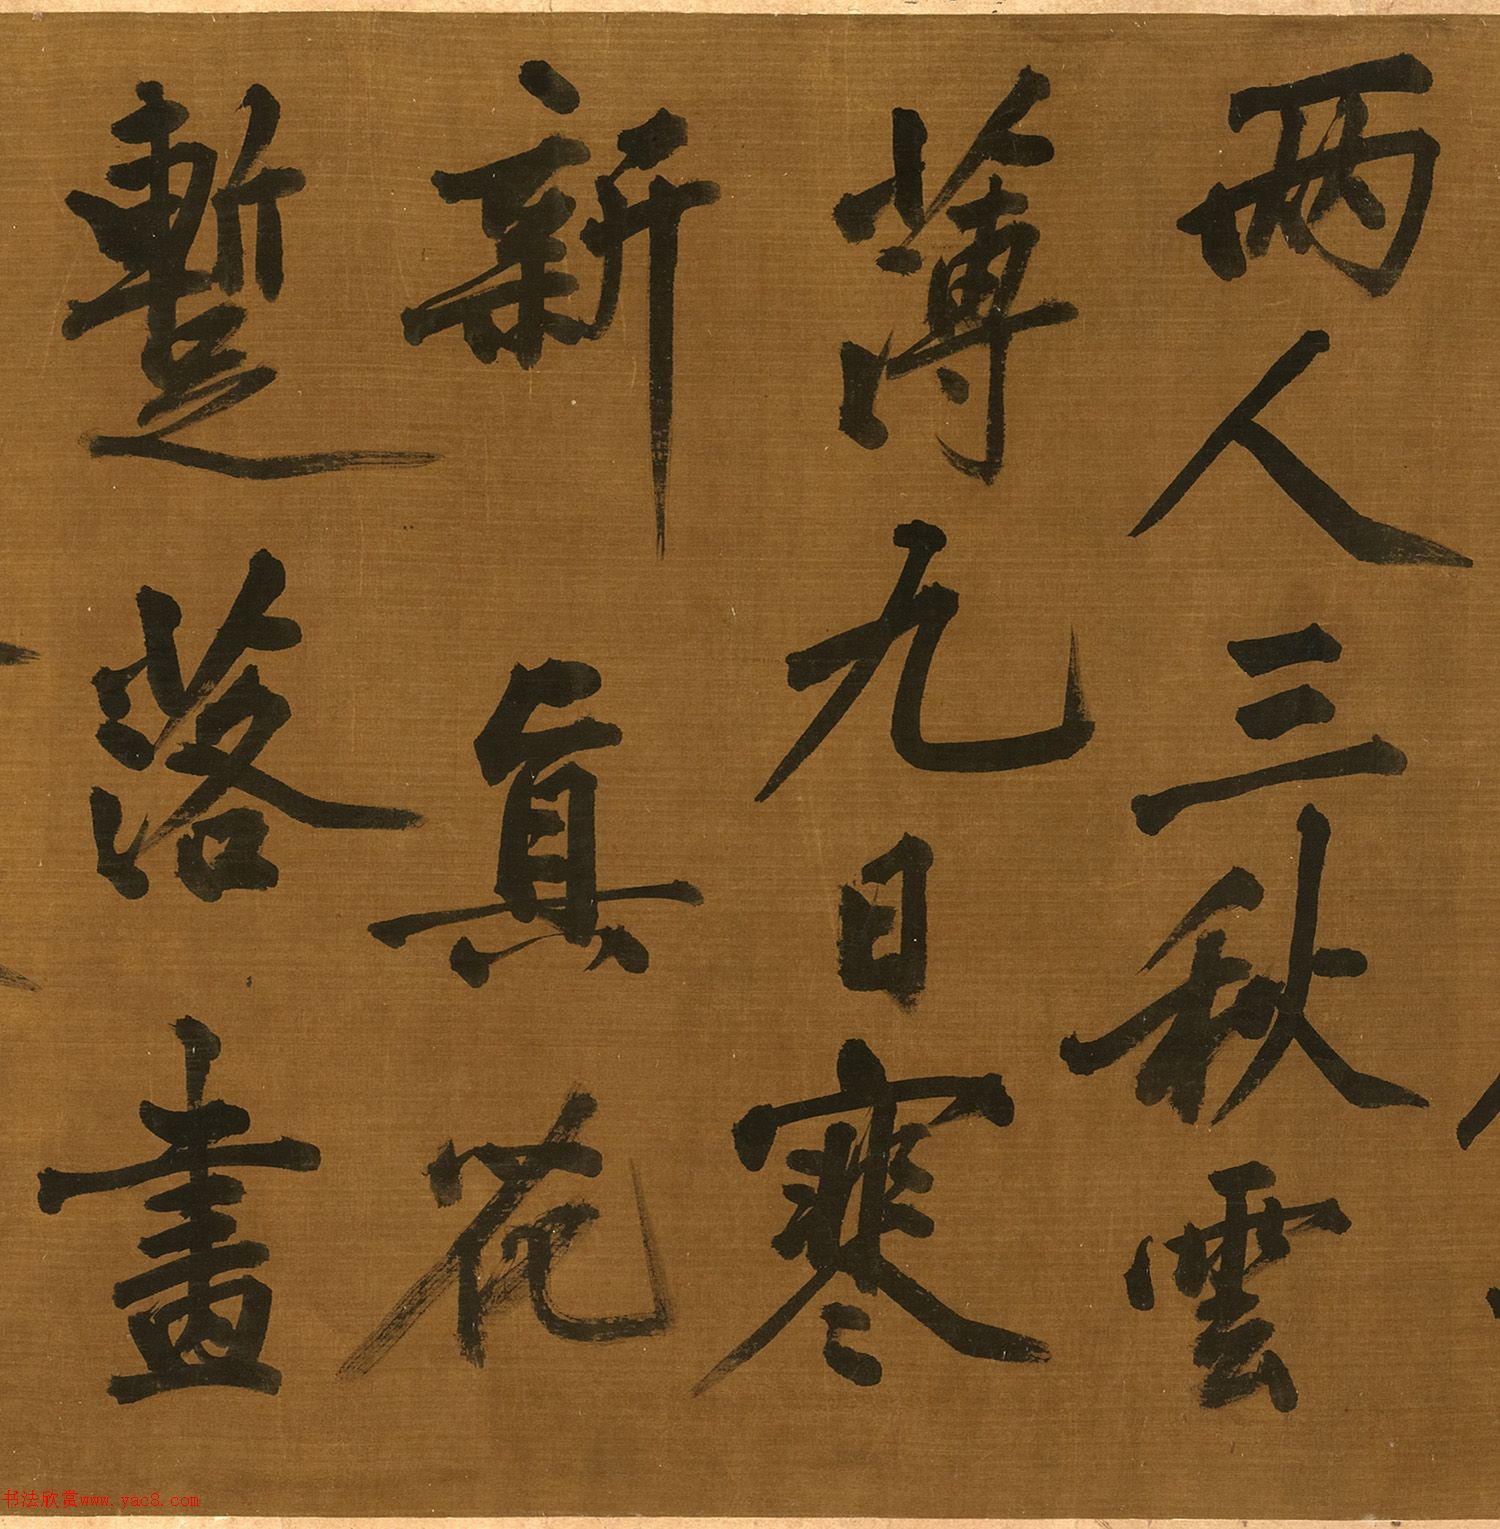 兩人三秋雲
薄九日寒
新真花
蹔落盡
书法欣赏www.yac8.com